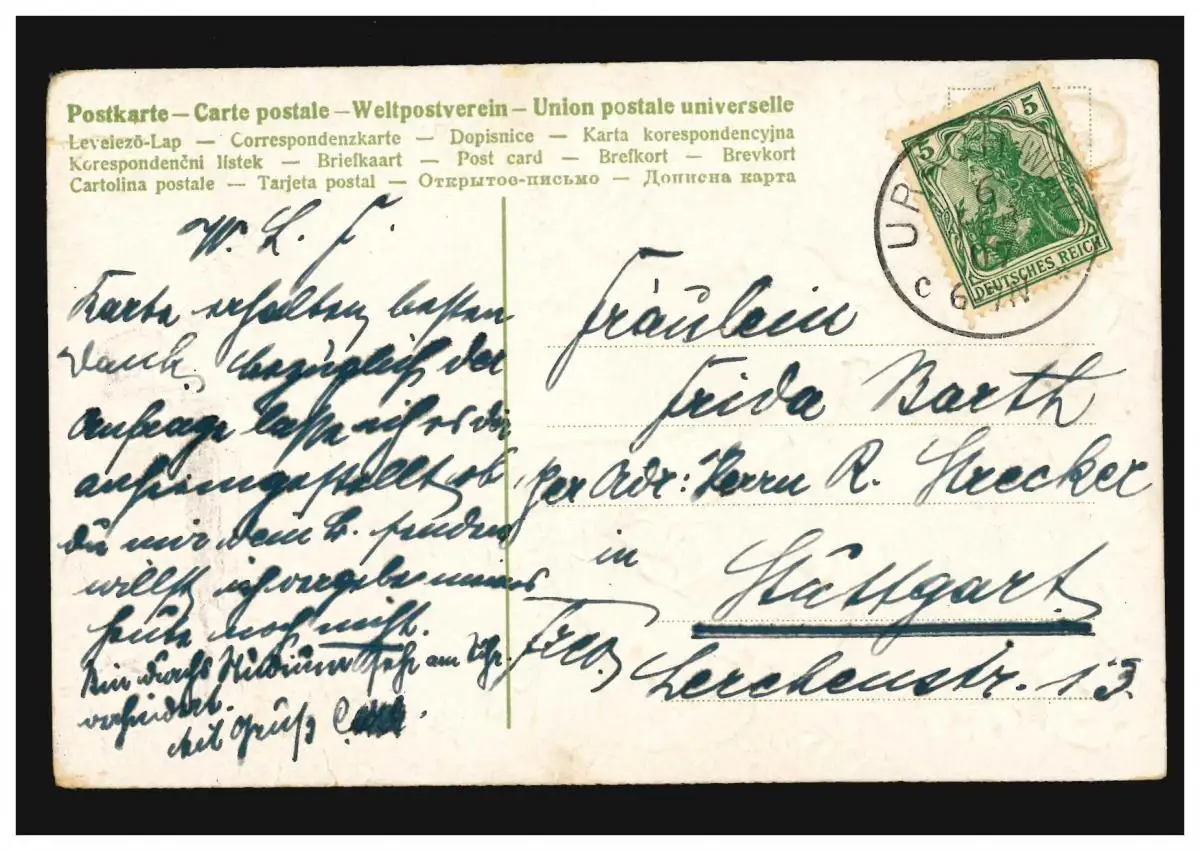 Postkarte — Carte postale — Weltpostverein — Union postale universelle
Levelező-Lap — Correspondenzkarte — Dopisnice — Karta korespondencyjna
Korespondenční lístek — Briefkaart — Post card — Brefkort — Brevkort
Cartolina postale — Tarjeta postal — Открытое-письмо — Дописна карта
W. L. F.
Karte erhalten besten
Dank. bezüglich der
Anfrage lasse ich es dir
anheimgestellt ob
du mir dem B. senden
willst ich vergebe meines
heute noch nicht.
Bin durchs Studium sehr am
verhindert.
Mit Gruß
Fräulein
Frida Barth
per Adr: Herrn R. Strecker
in
Stuttgart
Lerchenstr. 13.
5 5
DEUTSCHES REICH
UR
6
07
C 6-7N